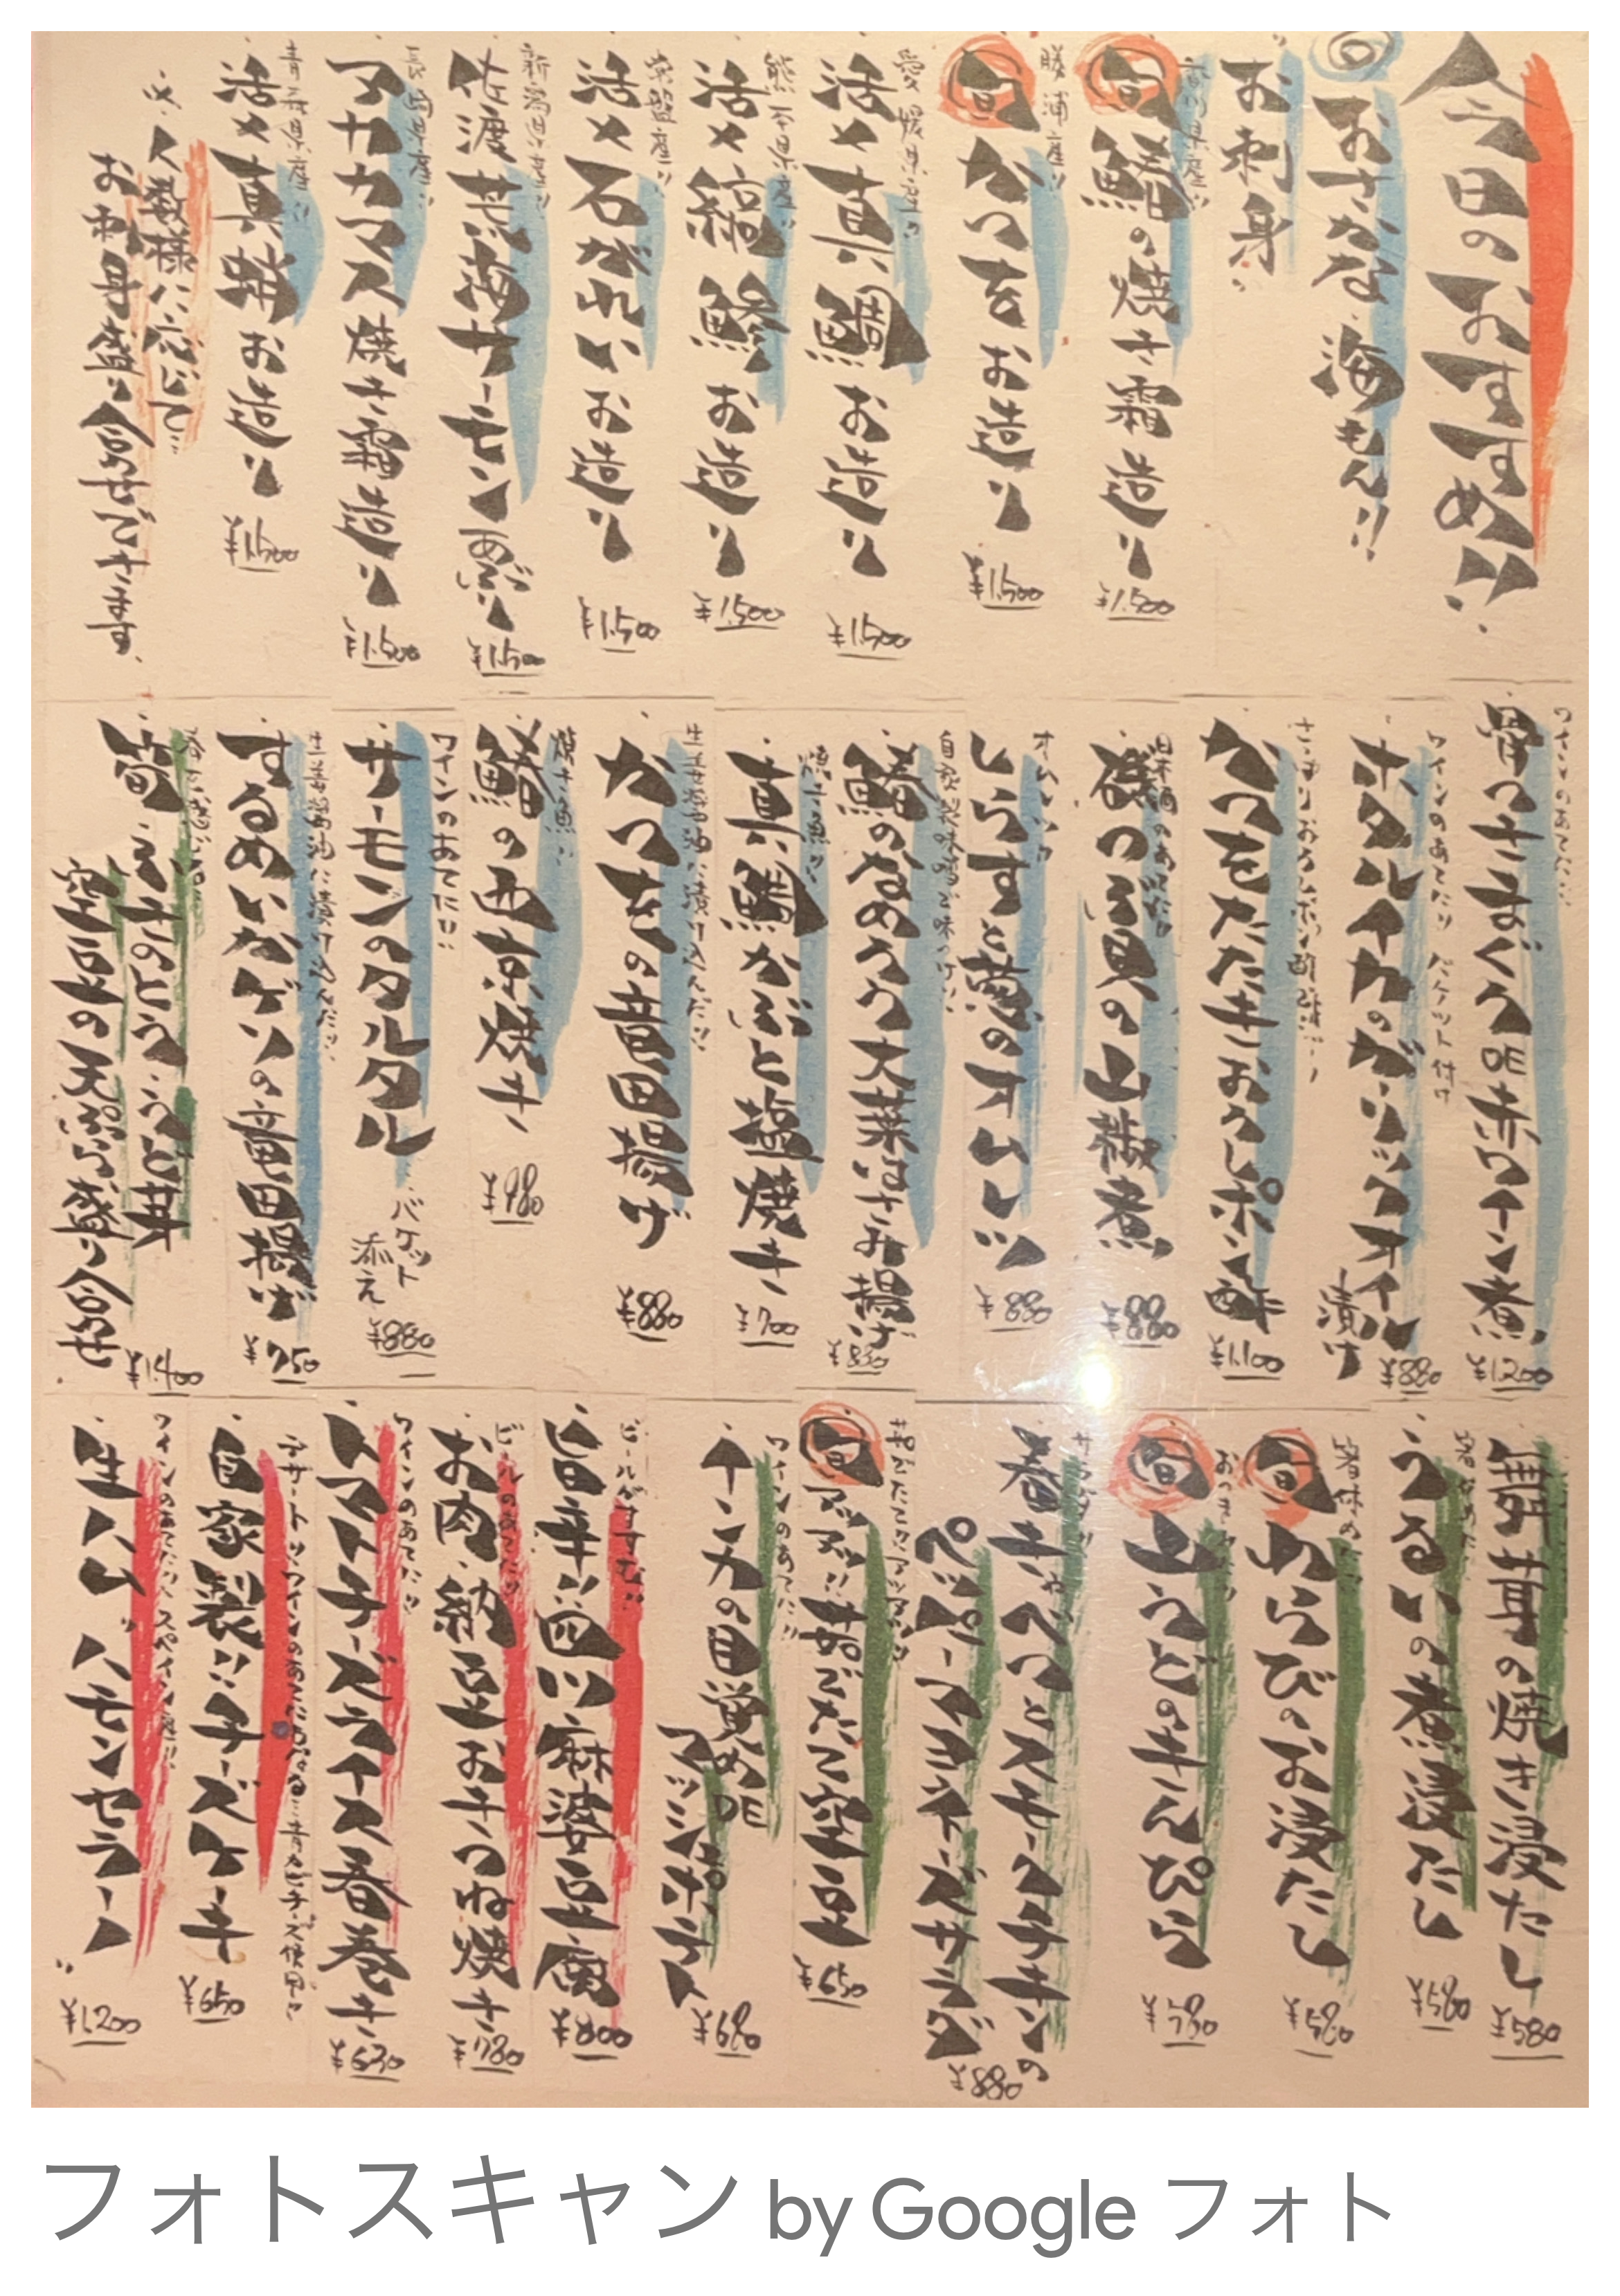 今日のおすすめ!!
旬 おさかな 海もん!!
お刺身
香川県産!!
旬 鰆の焼き霜造り
¥1,500
勝浦産!!
旬 かつをお造り
¥1,500
愛媛県産!!
活〆真鯛お造り
¥1,500
熊本県産!!
活〆縞鯵お造り
¥1,500
常磐産!!
活〆石がれいお造り
¥1,500
新潟県産!!
佐渡荒海サーモン炙り
¥1,500
長崎県産!!
マカマス焼き霜造り
¥1,500
青森県産!!
活〆真鯒お造り
¥1,500
※人数様に応じて…
お刺身盛り合せできます。
ワインのあてに!!
骨つきまぐろDE赤ワイン煮
¥1,200
ワインのあてに!! バケット付け
ホタルイカのガーリックオイル漬け
¥880
さっぱりおろしポン酢で!!
かつをたたきおろしポン酢
¥1,100
日本酒のあてに!!
磯つぶ貝の山椒煮
¥880
オムレツ!!
しらすと葱のオムレツ
¥880
自家製味噌で味つけ!!
鰆のなめろう大葉はさみ揚げ
¥830
焼き魚!!
真鯛かぶと塩焼き
¥700
生姜醤油に漬け込んだ!!
かつをの竜田揚げ
¥880
焼き魚!!
鰆の西京焼き
¥980
ワインのあてに!!
サーモンのタルタル
バケット添え
¥880
生姜醤油に漬け込んだ!!
するめいかゲソの竜田揚げ
¥750
春を感じる
筍・ふきのとう・うど・丼
空豆の天ぷら盛り合せ
¥1,400
舞茸の焼き浸たし
¥580
箸休めに!!
うるいの煮浸たし
¥580
箸休めに!!
旬 わらびのお浸たし
¥580
おつまみに!!
旬 山うどのきんぴら
¥580
サラダ!!
春キャベツとスモークチキンの
ペッパーマヨチーズサラダ
¥880
茹でたて!!アツアツ!!
旬 アツアツ!!茹でたて空豆
¥650
ワインのあてに!!
インカの目覚めDE
マッシュポテト
¥680
ビールがすすむ!!
旨辛!!四川麻婆豆腐
¥800
ビールのあてに!!
お肉・納豆おきつね焼き
¥780
ワインのあてに!!
トマトチーズライス春巻き
¥630
デザート!!ワインのあてにもなる…青カビチーズ使用!!
自家製!!チーズケーキ
¥650
ワインのあてに!!スペイン産!!
生ハム"ハモンセラーノ"
¥1,200
フォトスキャン by Google フォト